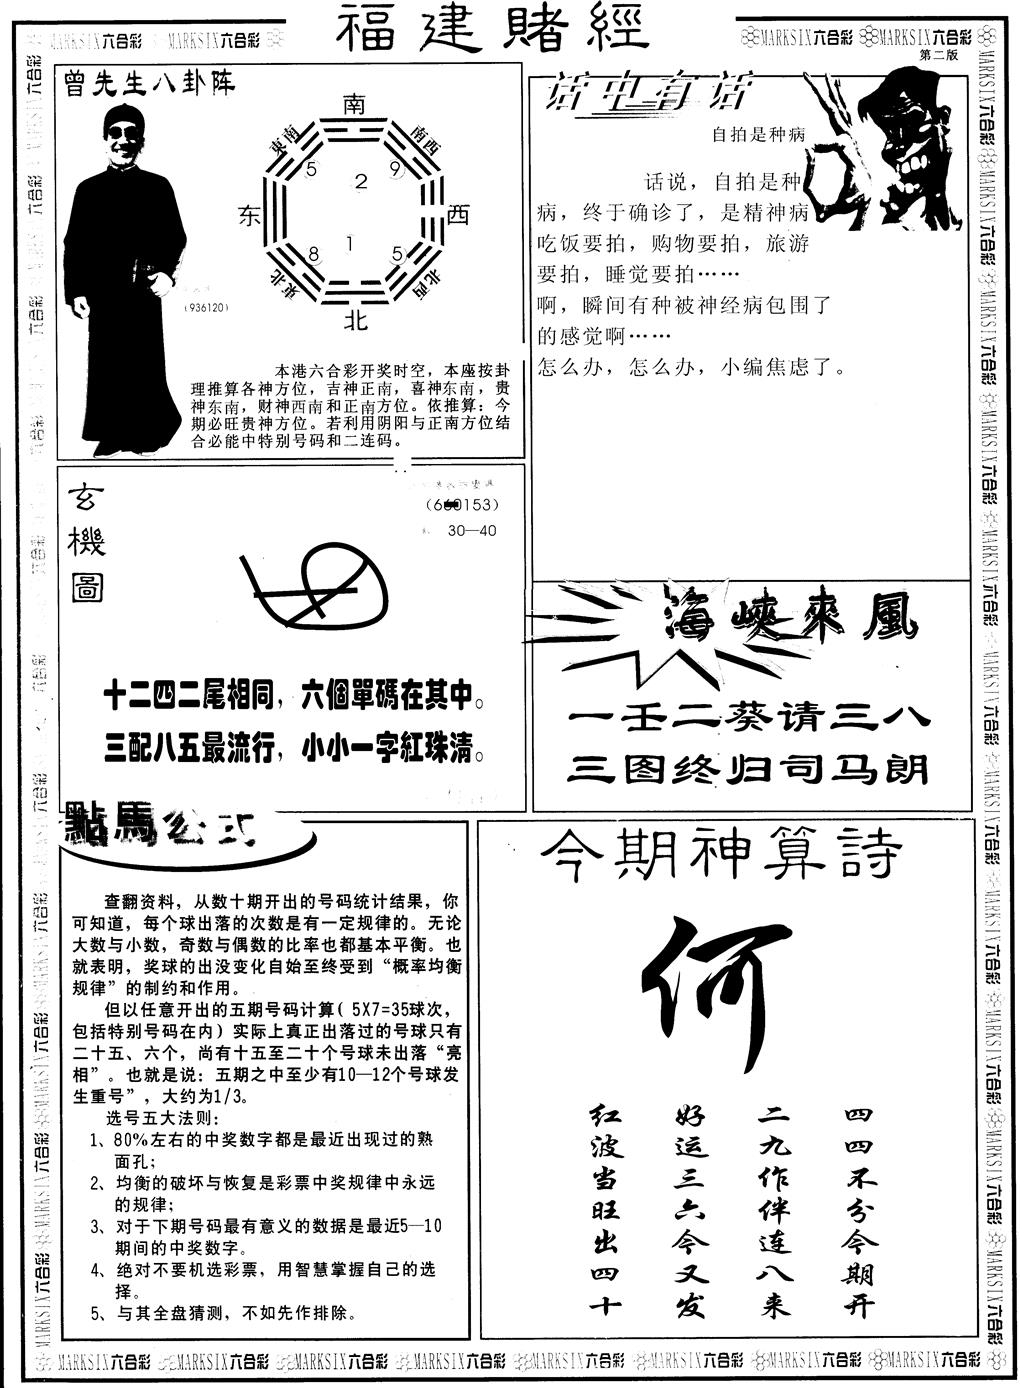 福建賭經
MARKSIX六合彩 MARKSIX六合彩
MARKSIX六合彩 MARKSIX六合彩
第二版
曾先生八卦阵
南
東南
南西
5
9
2
东
西
8
1
5
東北
北西
北
(936120)
本港六合彩开奖时空，本座按卦
理推算各神方位，吉神正南，喜神东南，贵
神东南，财神西南和正南方位。依推算：今
期必旺贵神方位。若利用阴阳与正南方位结
合必能中特别号码和二连码。
话中有话
自拍是种病
话说，自拍是种
病，终于确诊了，是精神病
吃饭要拍，购物要拍，旅游
要拍，睡觉要拍……
啊，瞬间有种被神经病包围了
的感觉啊……
怎么办，怎么办，小编焦虑了。
玄機圖
30—40
十二四二尾相同，六個單碼在其中。
三配八五最流行，小小一字紅珠清。
海峽來風
一壬二葵请三八
三图终归司马朗
點馬公式
查翻资料，从数十期开出的号码统计结果，你
可知道，每个球出落的次数是有一定规律的。无论
大数与小数，奇数与偶数的比率也都基本平衡。也
就表明，奖球的出没变化自始至终受到“概率均衡
规律”的制约和作用。
但以任意开出的五期号码计算( 5X7=35球次，
包括特别号码在内）实际上真正出落过的号球只有
二十五、六个，尚有十五至二十个号球未出落“亮
相”。也就是说：五期之中至少有10—12个号球发
生重号”，大约为1/3。
选号五大法则：
1、80%左右的中奖数字都是最近出现过的熟
面孔；
2、均衡的破坏与恢复是彩票中奖规律中永远
的规律；
3、对于下期号码最有意义的数据是最近5—10
期间的中奖数字。
4、绝对不要机选彩票，用智慧掌握自己的选
择。
5、与其全盘猜测，不如先作排除。
今期神算詩
何
四四不分今期开
二九作伴连八来
好运三六今又发
红波当旺出四十
MARKSIX六合彩 MARKSIX六合彩 MARKSIX六合彩 MARKSIX六合彩 MARKSIX六合彩 MARKSIX六合彩 MARKSIX六合彩 MARKSIX六合彩